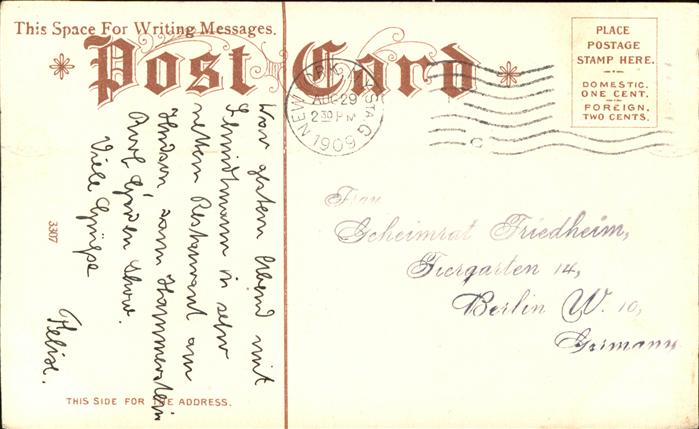 This Space For Writing Messages.
Post Card
PLACE
POSTAGE
STAMP HERE.
DOMESTIC.
ONE CENT.
FOREIGN,
TWO CENTS.
NEW YORK, N.Y. STA. G
AUG 29
2 30 PM
1909
C
War gestern Abend mit
in sehr
nettem Restaurant am
Hudson, dann Hammerstein
Roof Garden Show.
Viele Grüße
Felix.
Frau
Geheimrat Friedheim,
Tiergarten 14,
Berlin W. 10,
Germany
3307
THIS SIDE FOR THE ADDRESS.